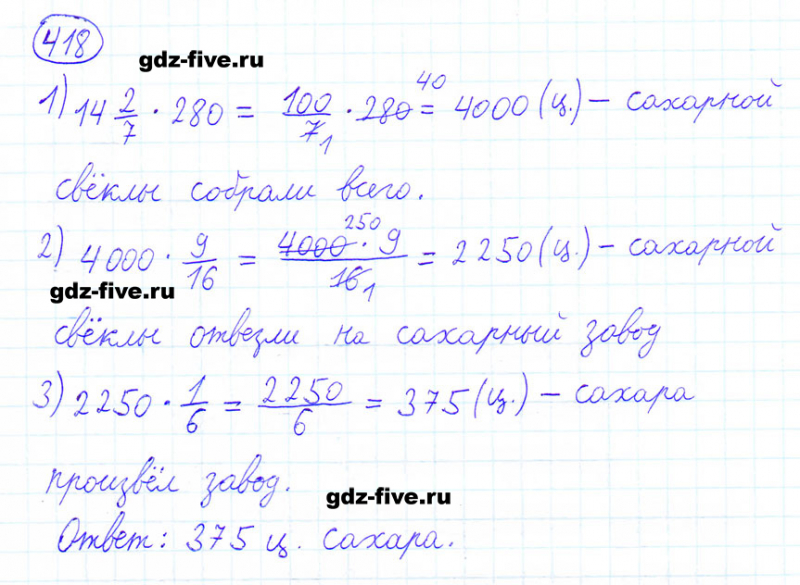 418
gdz-five.ru
1) 14 2/7 · 280 = 100/7 1 · 280 40 = 4000 (ц.) – сахарной
свёклы собрали всего.
2) 4000 · 9/16 = 4000 250 · 9/16 1 = 2250 (ц.) – сахарной
gdz-five.ru
свёклы отвезли на сахарный завод
3) 2250 · 1/6 = 2250/6 = 375 (ц.) – сахара
произвёл завод.
gdz-five.ru
Ответ: 375 ц. сахара.